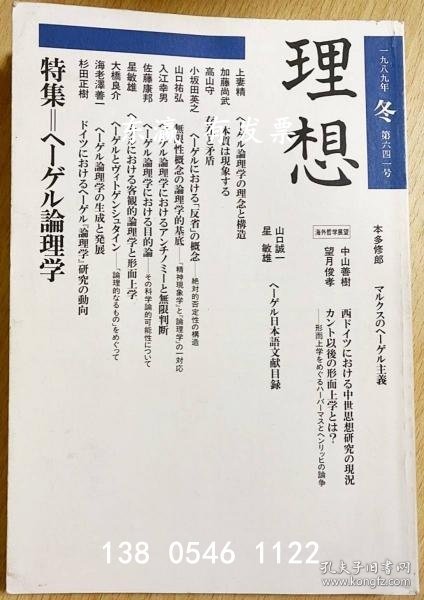 一九八九年 冬 第六四一号
理想
本多修郎 マルクスのヘーゲル主義
海外哲学展望
中山善樹 西ドイツにおける中世思想研究の現況
望月俊孝 カント以後の形而上学とは?
——形而上学をめぐるハーバーマスとヘンリッヒの論争
山口誠一
星 敏雄 ヘーゲル日本語文献目録
上妻精 ヘーゲル論理学の理念と構造
加藤尚武 本質は現象する
高山守 存在と矛盾
小坂田英之 ヘーゲルにおける「反省」の概念 絶対的否定性の構造
山口祐弘 無限性概念の論理学的基底——『精神現象学』と『論理学』の一対応
入江幸男 ヘーゲル論理学におけるアンチノミーと無限判断
佐藤康邦 ヘーゲル論理学における目的論——その科学論的可能性について
星敏雄 ヘーゲルにおける客観的論理学と形而上学
大橋良介 ヘーゲルとヴィトゲンシュタイン——「論理的なるもの」をめぐって
海老澤善一 ヘーゲル論理学の生成と発展
杉田正樹 ドイツにおけるヘーゲル『論理学』研究の動向
特集＝ヘーゲル論理学
发票
138 0546 1122
孔夫子旧书网
www.kongfz.com